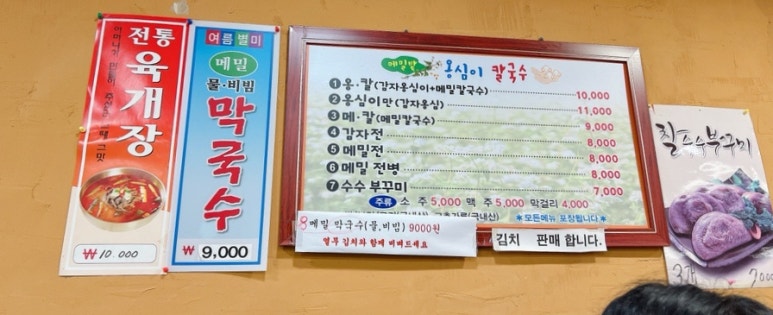 전통
육개장
₩ 10.000
여름별미
메밀
물·비빔
막국수
₩ 9,000
메밀밭 옹심이 칼국수
① 옹·칼(감자옹심이+메밀칼국수) 10,000
② 옹심이만(감자옹심) 11,000
③ 메·칼(메밀칼국수) 9,000
④ 감자전 8,000
⑤ 메밀전 8,000
⑥ 메밀 전병 8,000
⑦ 수수 부꾸미 7,000
주류 소주 5,000 맥주 5,000 막걸리 4,000
*모든메뉴 포장됩니다*
8 메밀 막국수(물,비빔) 9000원
열무 김치와 함께 비벼드세요
김치 판매 합니다.
수수부꾸미
3개 7000